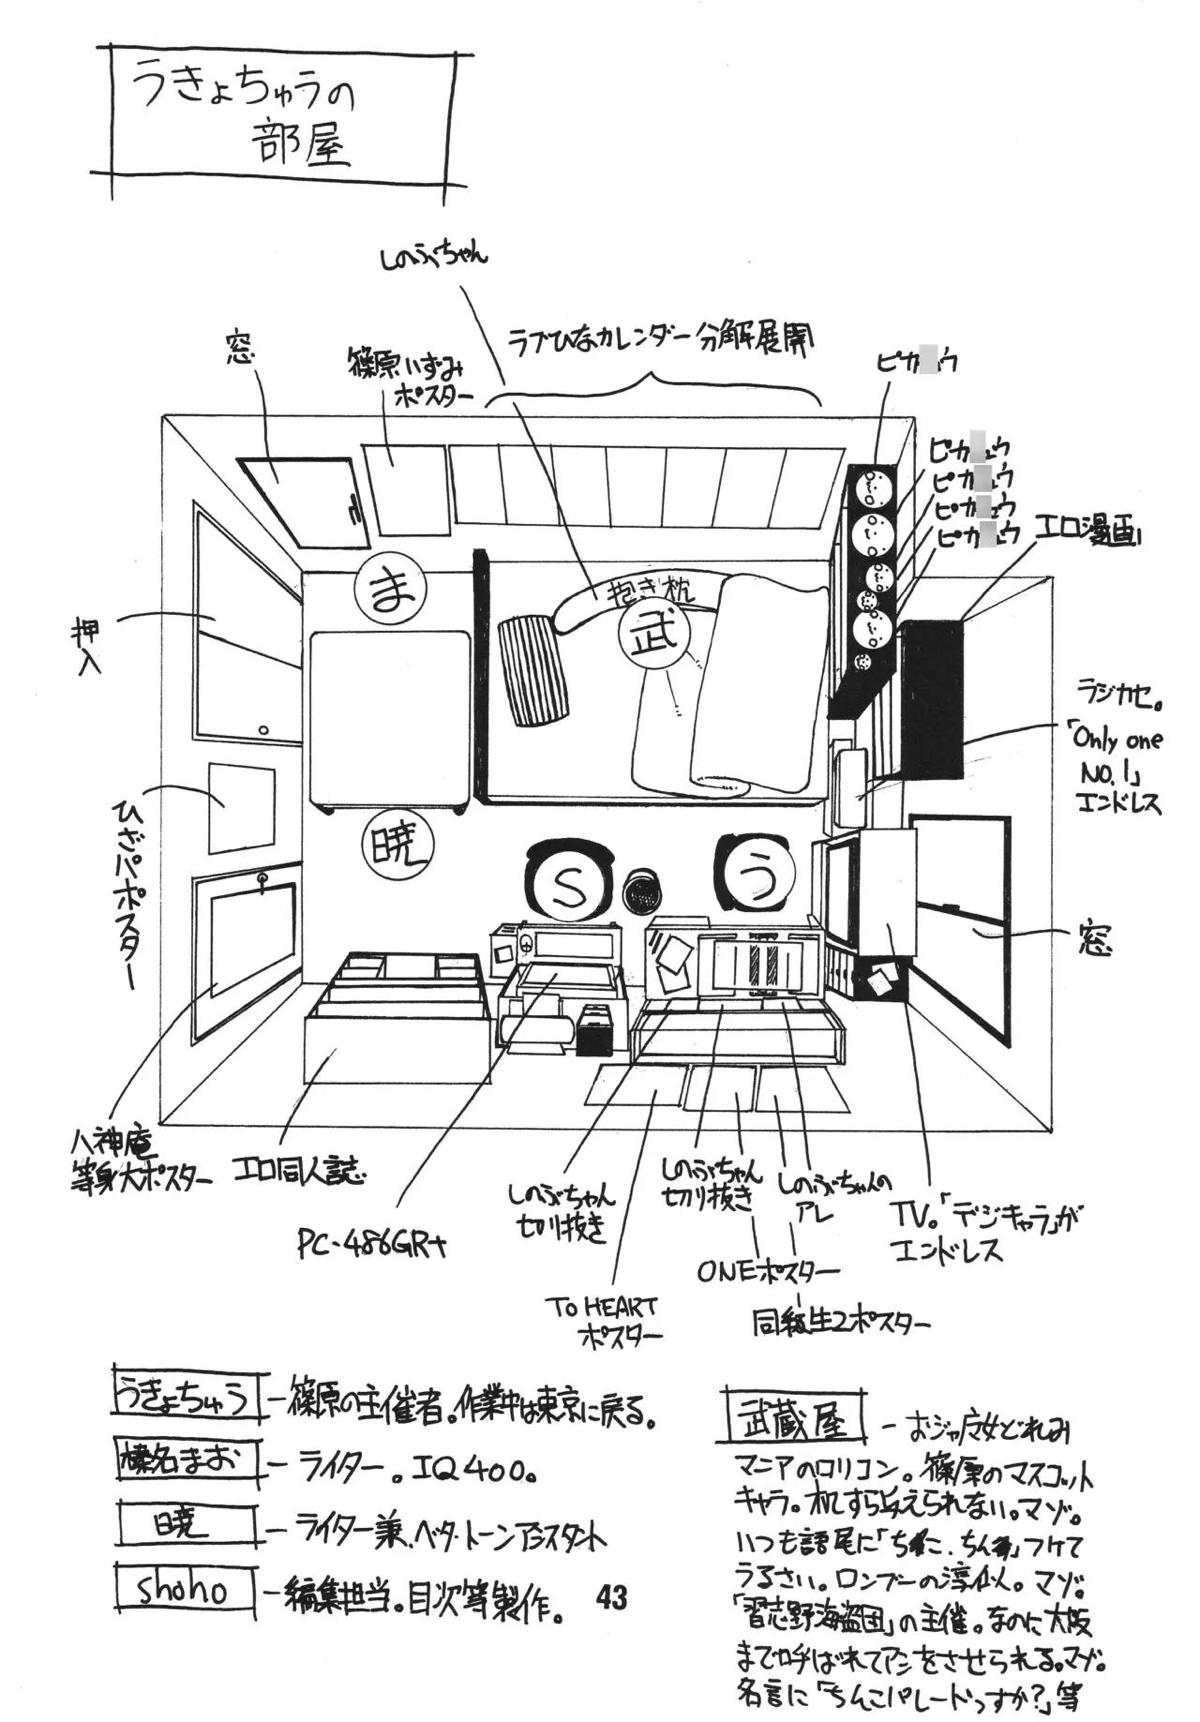 うきょちゅうの
部屋
しのぶちゃん
ラブひなカレンダー分解展開
窓
篠原いずみ
ポスター
ピカ ュウ
ピカ ュウ
ピカ ュウ
ピカ ュウ
ピカ ュウ
エロ漫画
ま
抱き枕
武
押入
ラジカセ。
「Only one
NO.1」
エンドレス
ひざパポスター
暁
S
う
窓
八神庵
等身大ポスター
エロ同人誌
PC-486GR+
しのぶちゃん
切り抜き
しのぶちゃん
切り抜き
しのぶちゃんの
アレ
TV。「デジキャラ」が
エンドレス
ONEポスター
To HEART
ポスター
同級生2ポスター
うきょちゅう -篠原の主催者。作業中は東京に戻る。
榛名まお -ライター。IQ400。
暁 -ライター兼、ベタ・トーンアシスタント
shoho -編集担当。目次等製作。
43
武蔵屋 -おジャ魔女どれみ
マニアのロリコン。篠原のマスコット
キャラ。机すら与えられない。マゾ。
いつも語尾に「 」つけて
うるさい。ロンブーの淳似。マゾ。
「習志野海盗団」の主催。なのに大阪
まで呼ばれてアシをさせられる。マゾ。
名言に「ちんこパレードっすか?」等